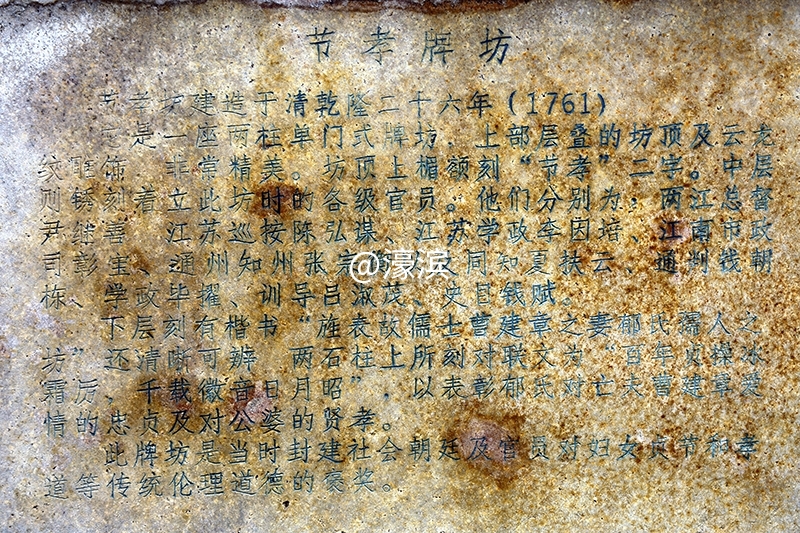 节孝牌坊
节孝坊建造于清乾隆二十六年(1761)
是一座两柱单门式牌坊、上部层叠的坊顶及云龙
纹 饰 非常精美。坊顶上楣额刻“节孝”二字。中层
则镌刻着立此坊时的各级官员。他们分别为：两江总督
尹继善、江苏巡按陈弘谋、江苏学政李因培、江南布政
司彭宝、通州知州张 同知夏扶云、通判钱朝
栋、学政毕擢、训导吕淑茂、史目钱赋。
下层刻有楷书“旌表故儒士曹建章之妻郁氏孺人之
坊”还清晰可辨 两石柱上所刻对联文为“百年贞操冰
霜厉、千载徽音日月昭”，以表彰郁氏对亡夫曹建章爱
情的忠贞及对公婆的贤孝。
此牌坊是当时封建社会朝廷及官员对妇女贞节和孝
道等传统伦理道德的褒奖。
@濠滨